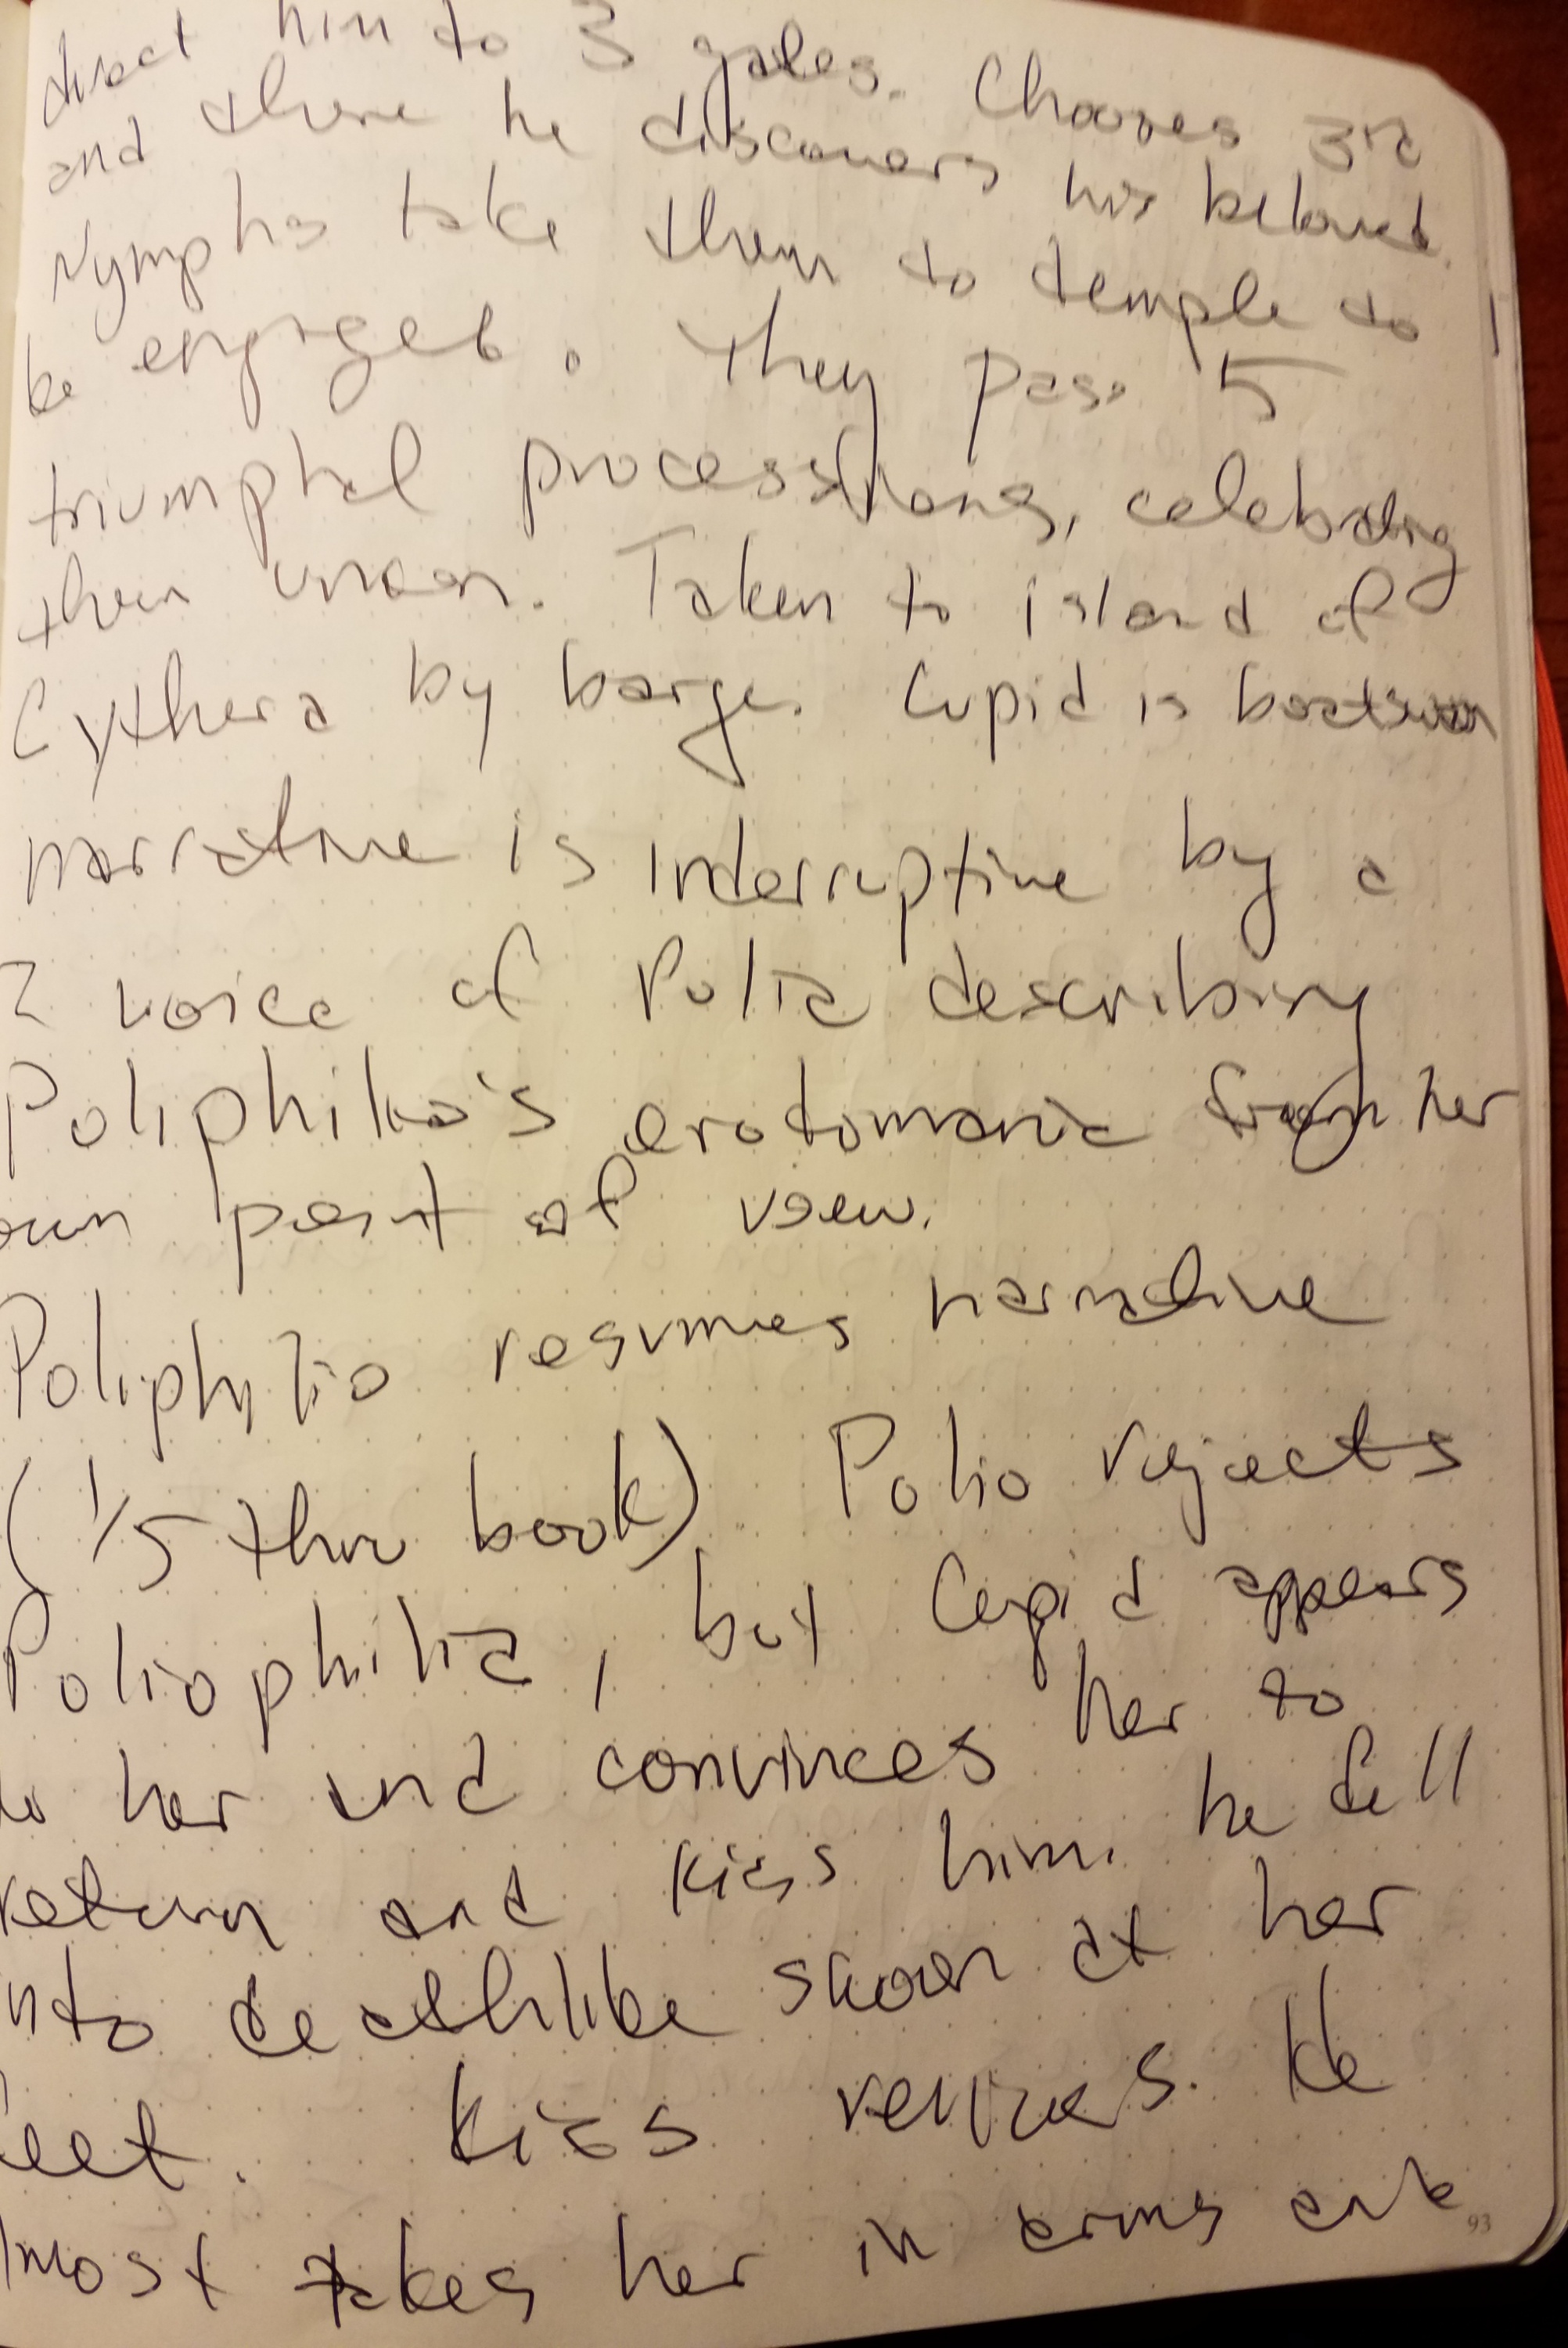 direct him to 3 gates. Chooses 3rd
and there he discovers his beloved.
Nymphs take them to temple to
be engaged. They pass 5
triumphal processions, celebrating
their union. Taken to island of
Cythera by barge. Cupid is boatswain
narrative is interruptive by a
2 voice of Polia describing
Poliphilo's erotomania from her
own point of view.
Poliphilio resumes narrative
(1/5 thru book). Polio rejects
Poliophilia, but Cupid appears
to her and convinces her to
return and kiss him. he fell
into deathlike swoon at her
feet. Kiss revives. He
lmost takes her in arms and
93